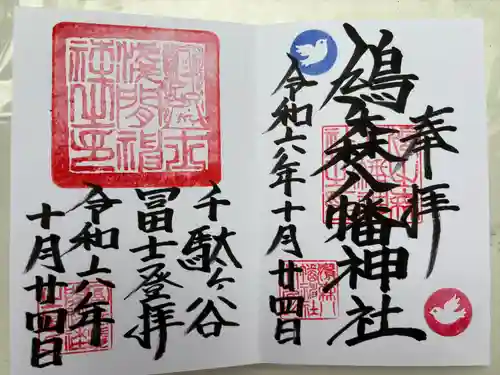 奉拝
鳩森八幡神社
令和六年十月廿四日
千駄ヶ谷
冨士登拝
令和六年
十月廿四日